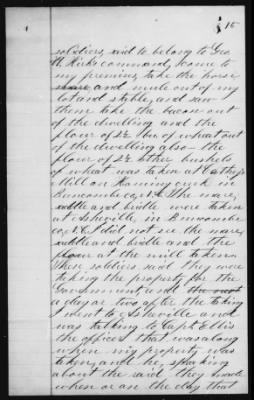 15
soldiers, said to belong to Geo
W. Kirks command, come to
my premises, take the horse
mare and mule out of my
lot and stable, and saw
them take the bacon out
of the dwelling and the
flour of 2½ bu. of wheat out
of the dwelling also - the
flour of 2½ other bushels
of wheat was taken at
Mill on Hominy creek in
Buncombe co, N.C. The mare,
saddle and bridle were taken
at Asheville in Buncombe
co, N.C. I did not see the mare,
saddle and bridle and the
flour at the mill taken.
These soldiers said they were
taking the property for the
Government and
a day or two after the taking
I went to Asheville and
was talking to Capt Ellis
the officer that was along
when my property was
taken, and he, speaking
about the raid they made
when or on the day that